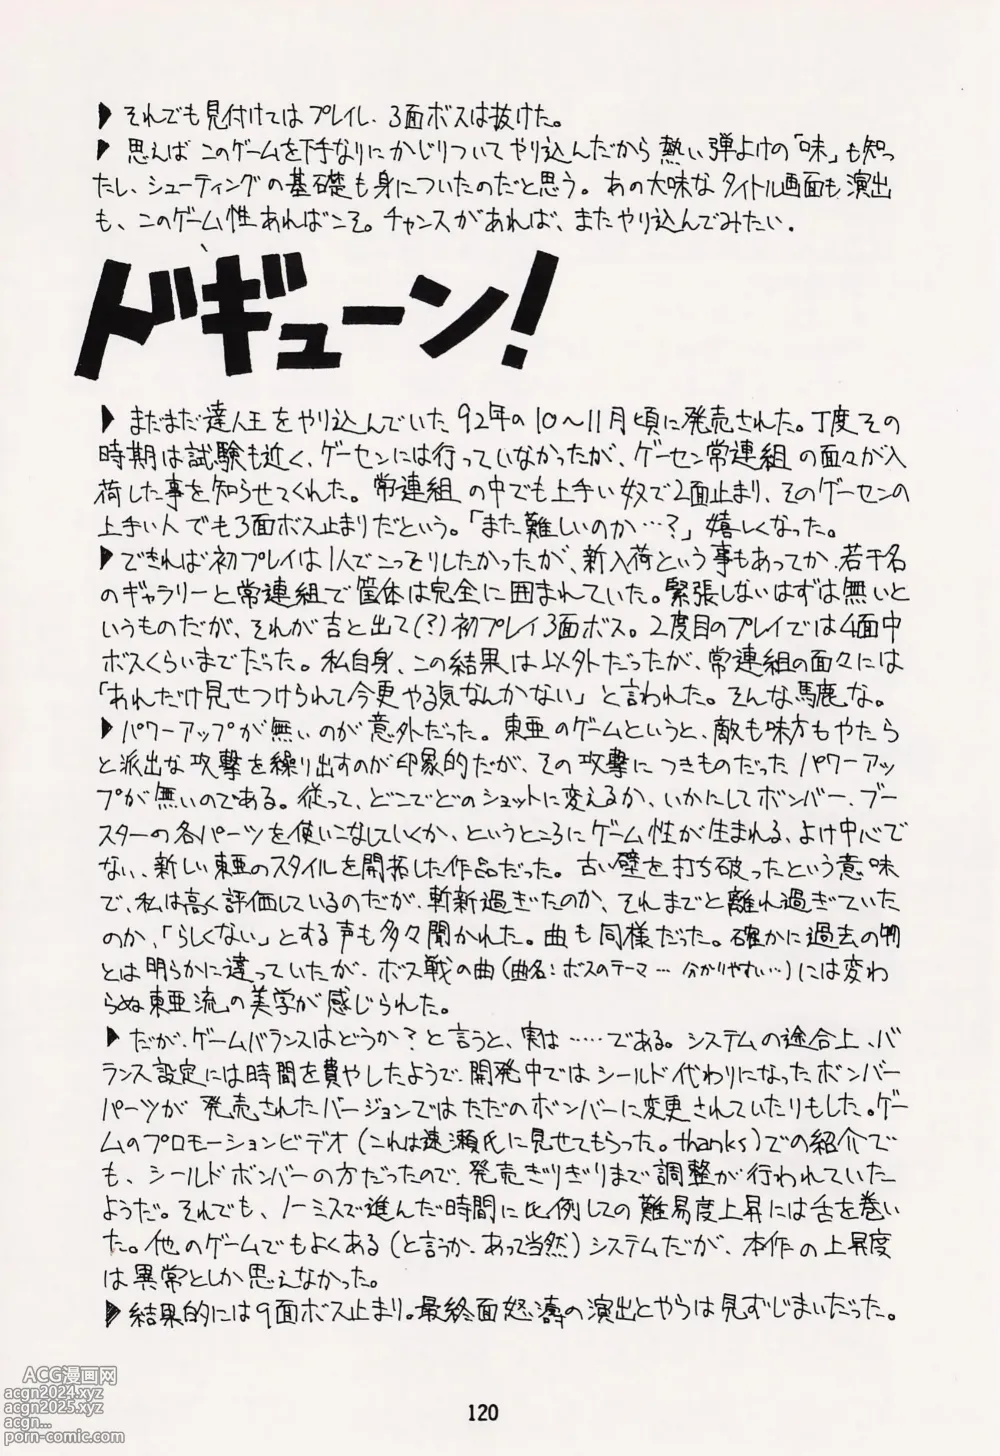 ▶ それでも見付けてはプレイし、3面ボスは抜けた。
▶ 思えばこのゲームを下手なりにかじりついてやり込んだから熱い弾よけの「味」も知っ
たし、シューティングの基礎も身についたのだと思う。あの大味なタイトル画面も演出
も、このゲーム性あればこそ。チャンスがあれば、またやり込んでみたい.
ドギューン!
▶ まだまだ達人王をやり込んでいた92年の10〜11月頃に発売された。丁度その
時期は試験も近く、ゲーセンには行っていなかったが、ゲーセン常連組の面々が入
荷した事を知らせてくれた。常連組の中でも上手い奴で2面止まり、そのゲーセンの
上手い人でも3面ボス止まりだという。「また難しいのか…?」嬉しくなった。
▶できれば初プレイは1人でこっそりしたかったが、新入荷という事もあってか、若干名
のギャラリーと常連組で筐体は完全に囲まれていた。緊張しないはずは無いと
いうものだが、それが吉と出て(?)初プレイ3面ボス。2度目のプレイでは4面中
ボスくらいまでだった。私自身、この結果は以外だったが、常連組の面々には
「あれだけ見せつけられて今更やる気なんかない」と言われた。そんな馬鹿な。
▶パワーアップが無いのが意外だった。東亜のゲームというと、敵も味方もやたら
と派出な攻撃を繰り出すのが印象的だが、その攻撃につきものだったパワーアッ
プが無いのである。従って、どこでどのショットに変えるか、いかにしてボンバー、ブー
スターの各パーツを使いこなしていくか、というところにゲーム性が生まれる、よけ中心で
ない、新しい東亜のスタイルを開拓した作品だった。古い壁を打ち破ったという意味
で、私は高く評価しているのだが、斬新過ぎたのか、それまでと離れ過ぎていた
のか、「らしくない」とする声も多々聞かれた。曲も同様だった。確かに過去の物
とは明らかに違っていたが、ボス戦の曲(曲名:ボスのテーマ…分かりやすい…)には変わ
らぬ東亜流の美学が感じられた。
▶だが、ゲームバランスはどうか?と言うと、実は……である。システムの途合上、バ
ランス設定には時間を費やしたようで、開発中ではシールド代わりになったボンバー
パーツが発売されたバージョンではただのボンバーに変更されていたりもした。ゲー
ムのプロモーションビデオ(これは速瀬氏に見せてもらった。thanks)での紹介で
も、シールドボンバーの方だったので、発売ぎりぎりまで調整が行われていた
ようだ。それでも、ノーミスで進んだ時間に比例しての難易度上昇には舌を巻い
た。他のゲームでもよくある(と言うか、あって当然)システムだが、本作の上昇度
は異常としか思えなかった。
▶結果的には9面ボス止まり。最終面怒濤の演出とやらは見ずじまいだった。
120
ACG漫画网
acgn2024.xyz
acgn2025.xyz
acgn...
porn-comic.com